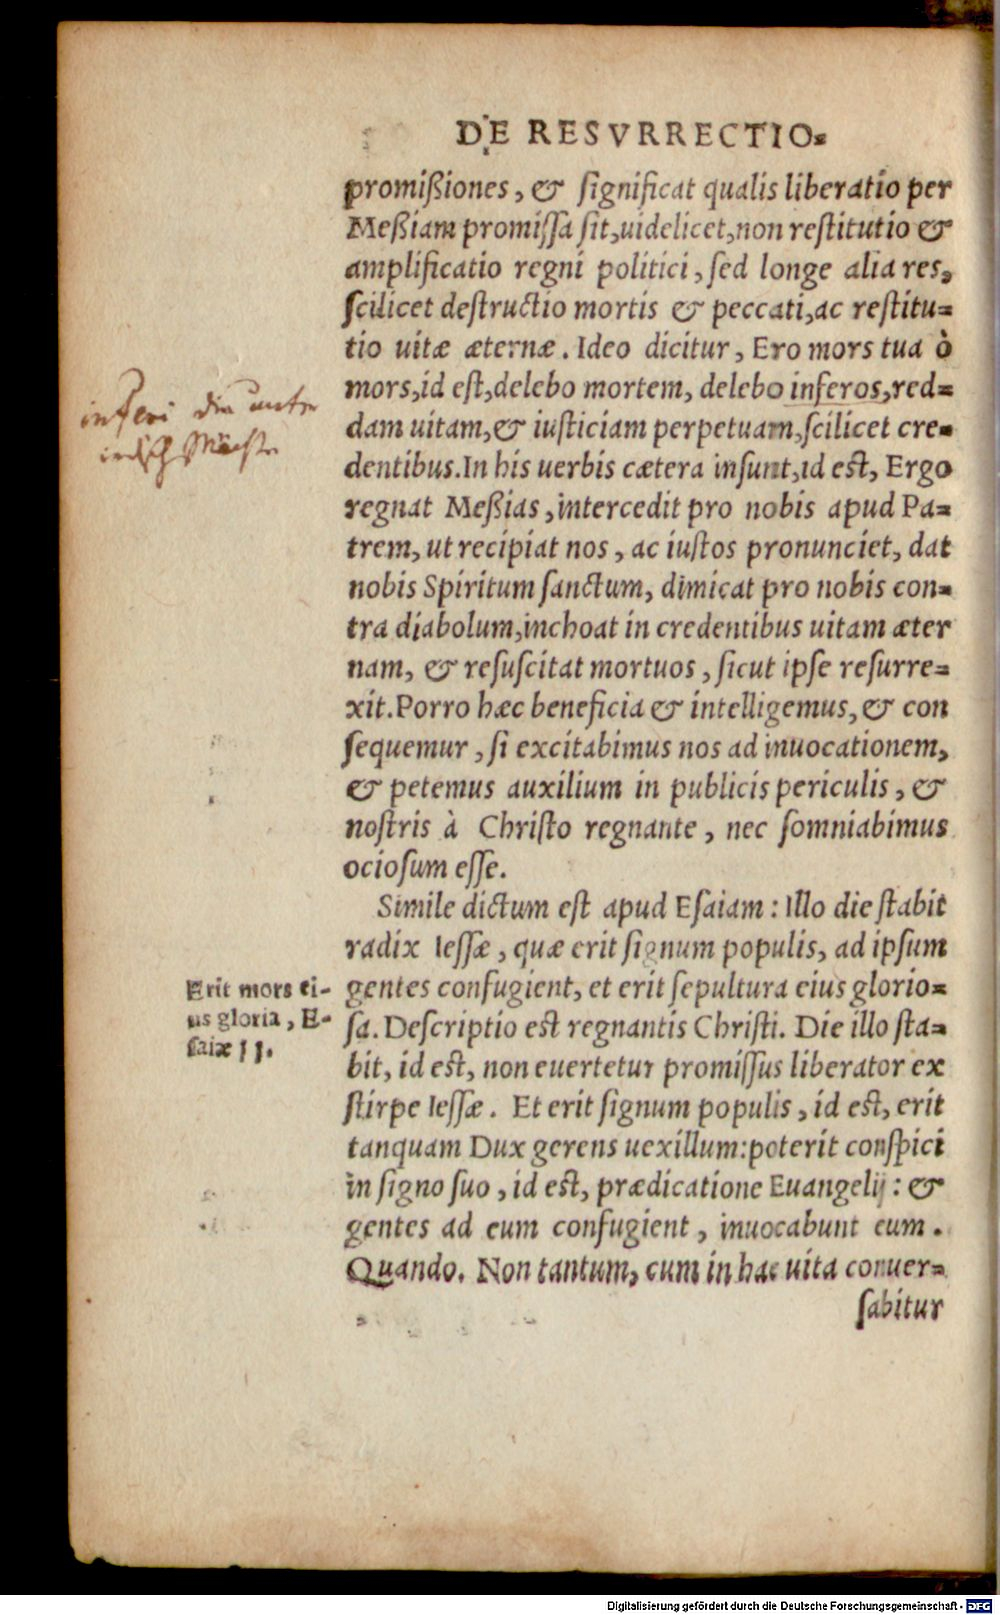 DE RESVRRECTIO-
promißiones, & ſignificat qualis liberatio per
Meßiam promiſſa ſit, uidelicet, non reſtitutio &
amplificatio regni politici, ſed longe alia res,
ſcilicet deſtructio mortis & peccati, ac reſtitu-
tio uitæ æternæ. Ideo dicitur, Ero mors tua ò
mors, id eſt, delebo mortem, delebo inferos, red-
dam uitam, & iuſticiam perpetuam, ſcilicet cre-
inferi die unter
irdisch Mächte
dentibus. In his uerbis cætera inſunt, id eſt, Ergo
regnat Meßias, intercedit pro nobis apud Pa-
trem, ut recipiat nos, ac iuſtos pronunciet, dat
nobis Spiritum ſanctum, dimicat pro nobis con-
tra diabolum, inchoat in credentibus uitam æter
nam, & reſuſcitat mortuos, ſicut ipſe reſurre-
xit. Porro hæc beneficia & intelligemus, & con
ſequemur, ſi excitabimus nos ad inuocationem,
& petemus auxilium in publicis periculis, &
noſtris à Chriſto regnante, nec ſomniabimus
ocioſum eſſe.
Simile dictum eſt apud Eſaiam: Illo die ſtabit
radix Ieſſæ, quæ erit ſignum populis, ad ipſum
gentes confugient, et erit ſepultura eius glorio-
ſa. Deſcriptio eſt regnantis Chriſti. Die illo ſta-
bit, id eſt, non euertetur promiſſus liberator ex
Erit mors ei-
us gloria, E-
ſaiæ 11.
ſtirpe Ieſſæ. Et erit ſignum populis, id eſt, erit
tanquam Dux gerens uexillum: poterit conſpici
in ſigno ſuo, id eſt, prædicatione Euangelij: &
gentes ad eum confugient, inuocabunt eum.
Quando. Non tantum, cum in hac uita conuer-
ſabitur
Digitalisierung gefördert durch die Deutsche Forschungsgemeinschaft - DFG